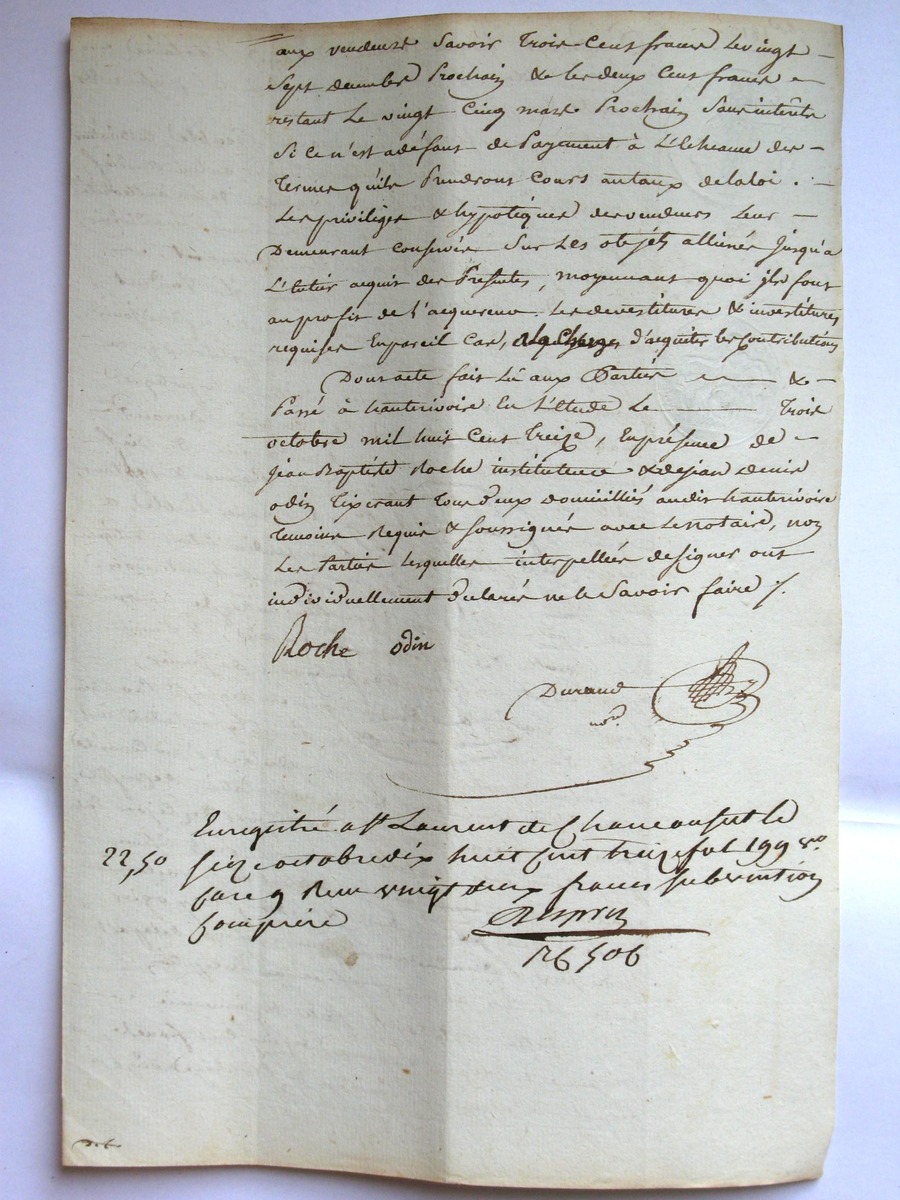 aux vendeurs Savoir Trois Cent francs Le vingt
Sept decembre Prochain & les deux Cent francs
restant Le vingt Cinq mars Prochain Sans interets
Si ce n'est a défaut de Payement à L'Echeance des
Termes qu'ils Prendrons Cours au taux de la loi .
Les privilèges & hypotiques des vendeurs Leur
Demeurant conservés Sur Les objets alliénés Jusqu'a
L'entier acquit des Présentes, moyennant quoi ils font
au profit de l'acquereur Les devestitures & investitures
requises En pareil Cas, a la Charge d'acquiter les Contributions
Dont acte fait Lû aux Parties &
Passé à hauterivoire En L'Etude Le Trois
octobre mil huit Cent Treize, En présence de
Jean Baptiste Roche instituteur & de Jean denis
odin Tixerant Tous deux domiciliés audit hauterivoire
Temoins Requis & Soussignés avec Le notaire, non
Les Parties Lesquelles interpellées de Signer ont
individuellement déclarés ne le Savoir faire /.
Roche odin
Durand
nore
Enregistré a St Laurent de Chamousset le
22,50 Seize octobre dix huit Cent treize fol 199 vo
Case 9 Reçu vingt deux francs Subvention
Comprise
26 506